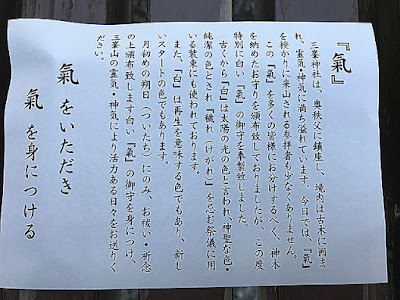 『氣』
三峯神社は、奥秩父に鎮座し、境内は古木に囲ま
れ、霊気・神気に満ち溢れています。今日では、「氣」
を授かりに来山される参拝者も少なくありません。
この「氣」を多くの皆様にお分けするべく、神木
を納めたお守りを頒布しておりましたが、この度
特別に白い「氣」の御守を奉製致しました。
古くから「白」は太陽の光の色と言われ、神聖な色・
純潔の色とされ、「穢れ（けがれ）」を忌む祭儀に用
いる装束にも使われております。
また、「白」は再生を意味する色でもあり、新し
いスタートの色でもあります。
月初めの朔日（ついたち）にのみ、お祓い・祈念
の上頒布致します白い「氣」の御守を身につけ、
三峯山の霊気・神気により活力ある日々をお送りく
ださい。
氣をいただき
氣を身につける